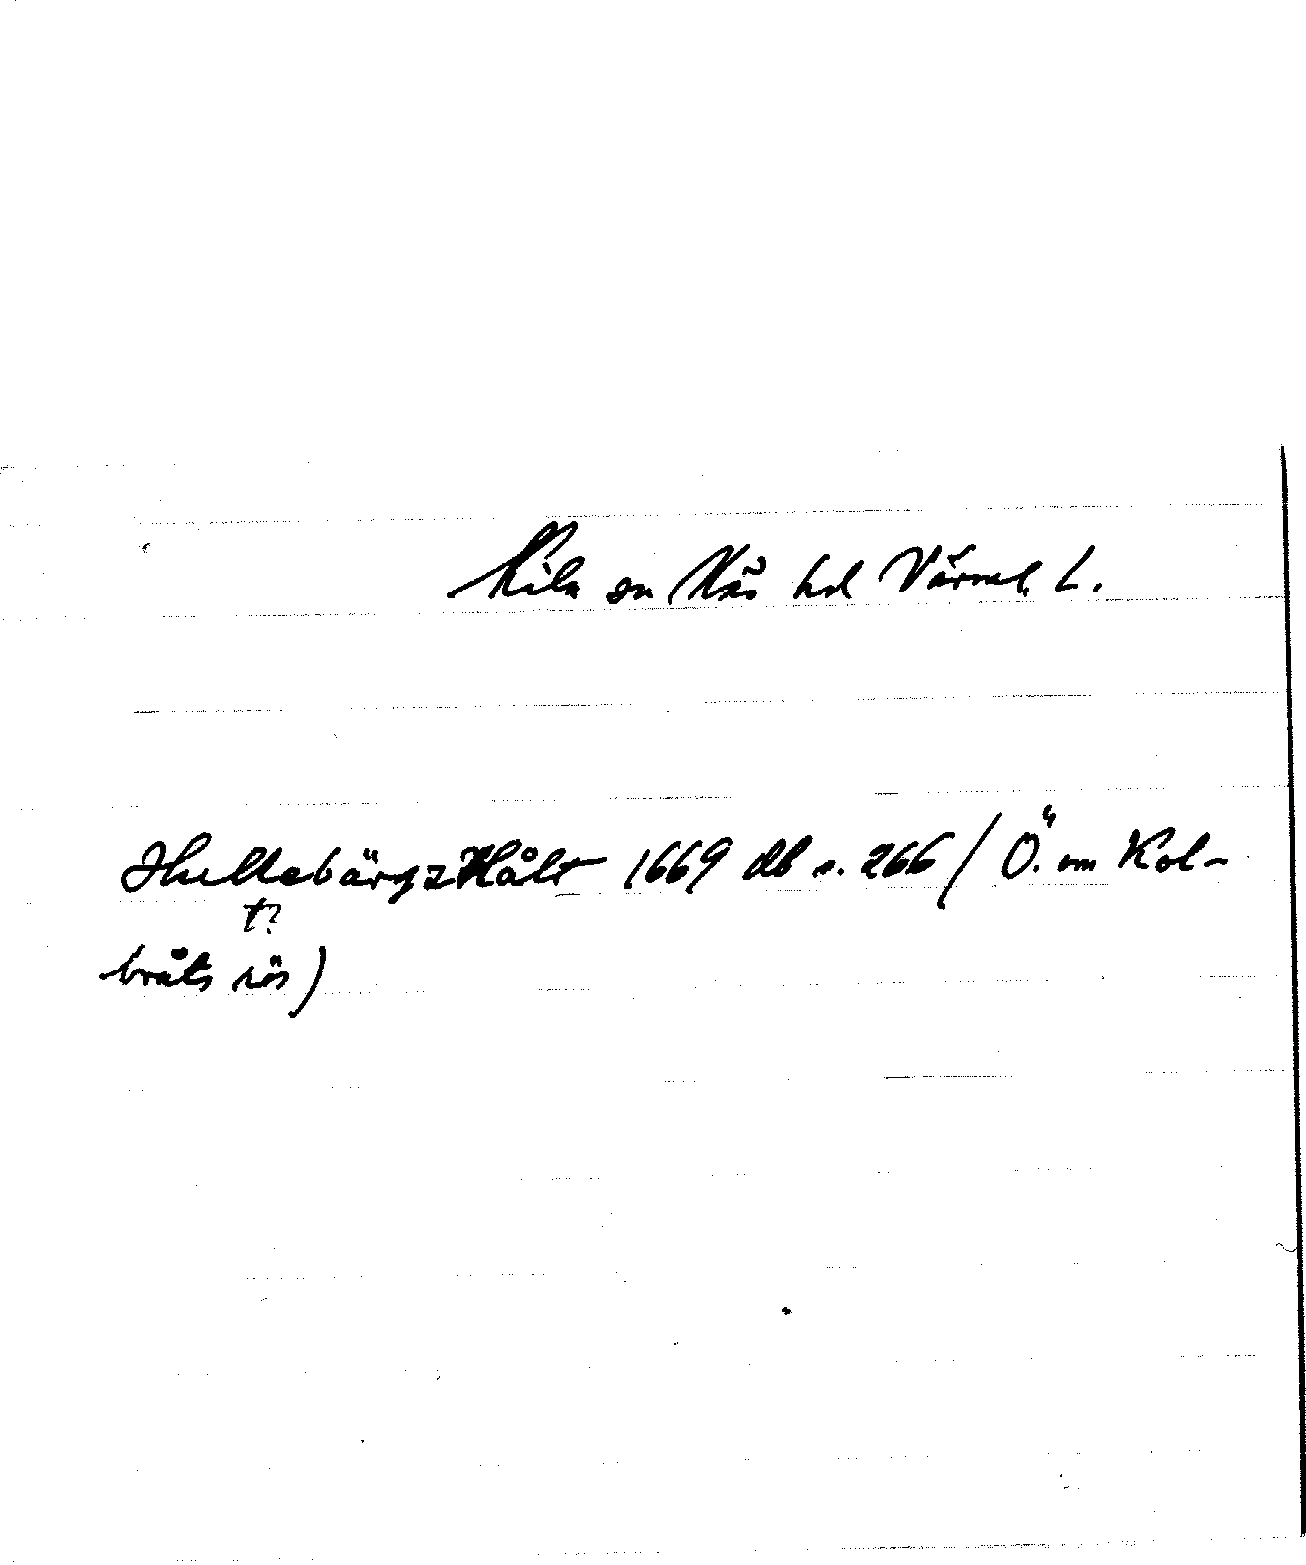 Kila sn Näs hd Värml. L.
HullebärgzHålt 1669 db s. 266 / Ö. om Kol-
t?
bråts rös)